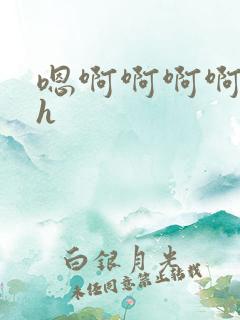 嗯啊啊啊啊
h
白银月光
未经同意禁止转载